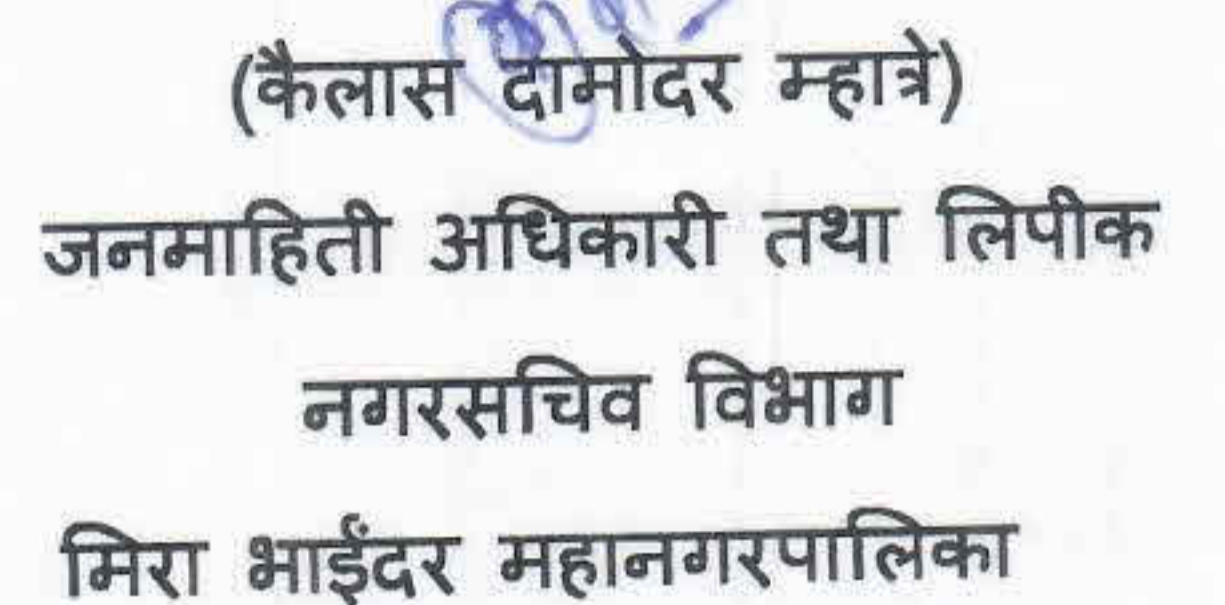 (कैलास दामोदर म्हात्रे)
जनमाहिती अधिकारी तथा लिपीक
नगरसचिव विभाग
मिरा भाईंदर महानगरपालिका